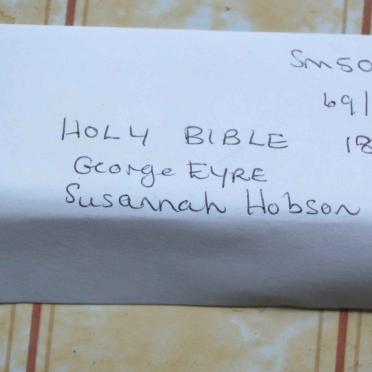 Sm50
69/
HOLY BIBLE 18
George EYRE
Susannah Hobson